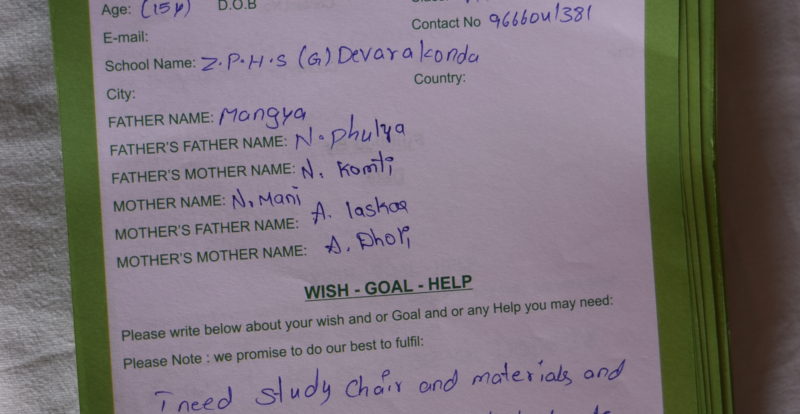 Age: (15y) D.O.B
Contact No 9666041381
E-mail:
School Name: Z.P.H.S (G) Devarakonda
City: Country:
FATHER NAME: Mangya
FATHER'S FATHER NAME: N. Phulya
FATHER'S MOTHER NAME: N. Komti
MOTHER NAME: N. Mani
MOTHER'S FATHER NAME: A. laskar
MOTHER'S MOTHER NAME: A. Dholi
WISH - GOAL - HELP
Please write below about your wish and or Goal and or any Help you may need:
Please Note : we promise to do our best to fulfil:
I need study chair and materials and